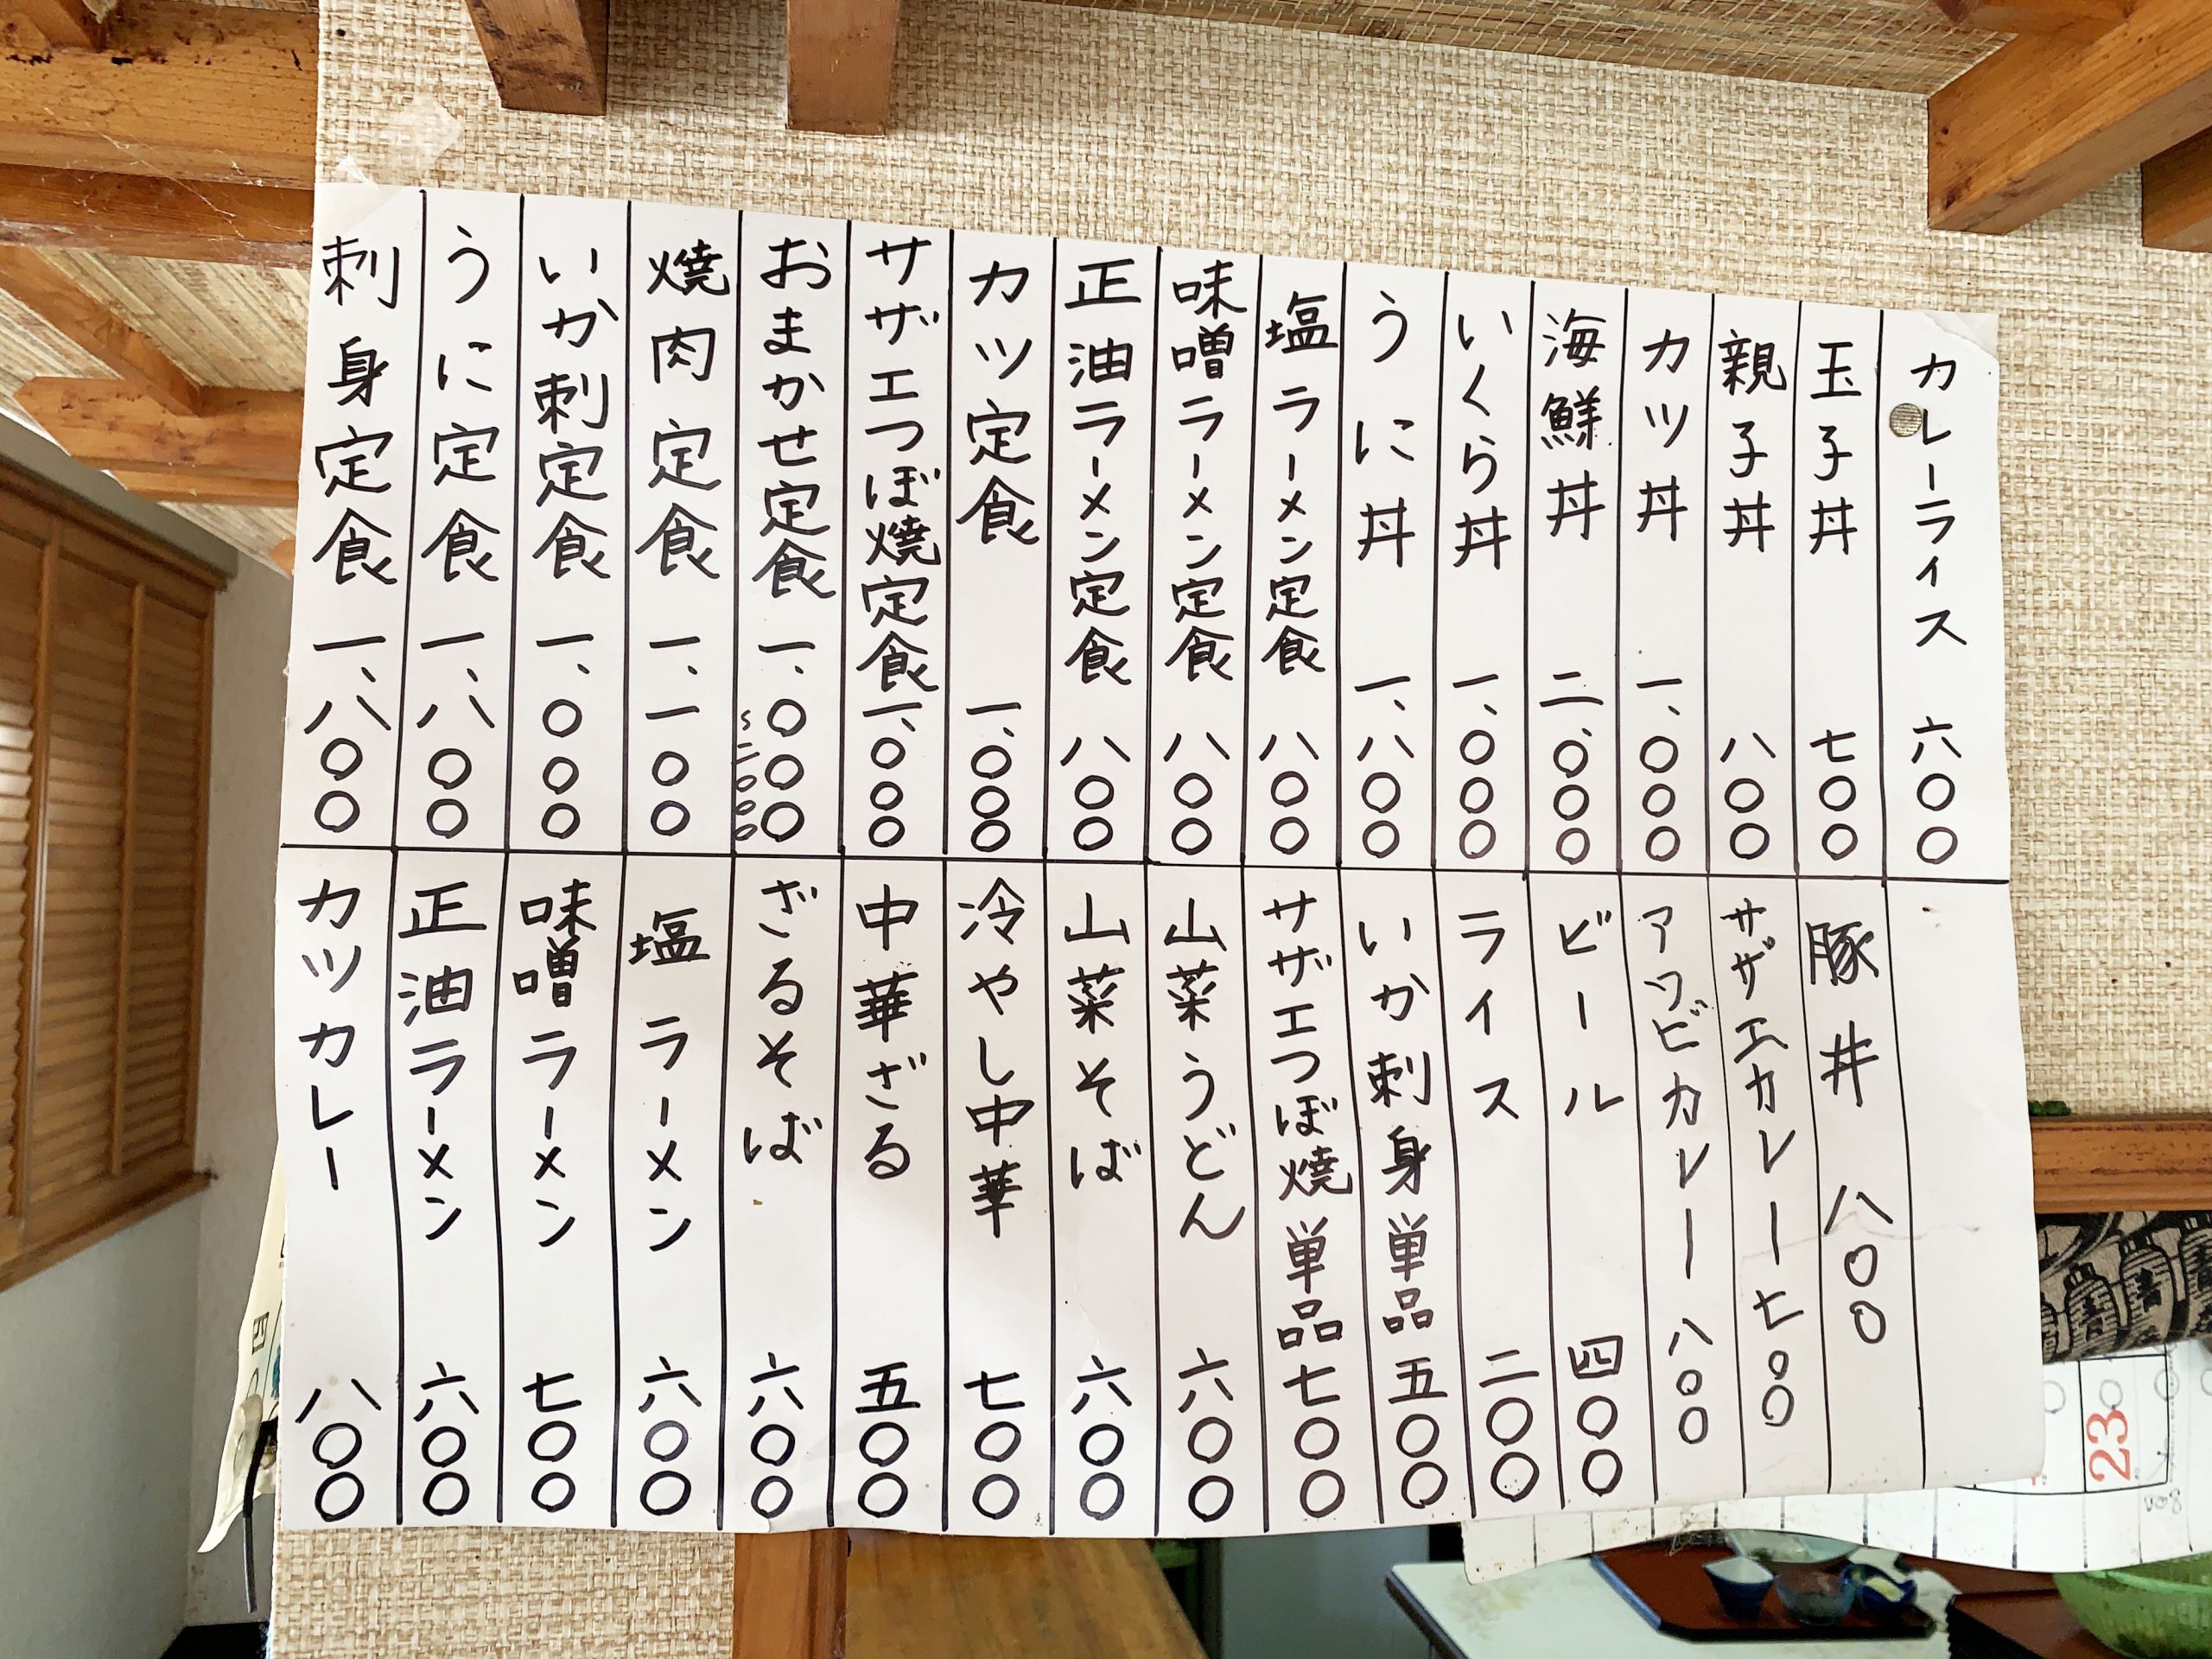 カレーライス 六〇〇
玉子丼 七〇〇
親子丼 八〇〇
カツ丼 一、〇〇〇
海鮮丼 二、〇〇〇
いくら丼 一、〇〇〇
うに丼 一、八〇〇
塩ラーメン定食 八〇〇
味噌ラーメン定食 八〇〇
正油ラーメン定食 八〇〇
カツ定食 一、〇〇〇
サザエつぼ焼定食 一、〇〇〇
おまかせ定食 一、〇〇〇
〜二〇〇〇
焼肉定食 一、一〇〇
いか刺定食 一、〇〇〇
うに定食 一、八〇〇
刺身定食 一、八〇〇
豚丼 八〇〇
サザエカレー 七〇〇
アワビカレー 八〇〇
ビール 四〇〇
ライス 二〇〇
いか刺身単品 五〇〇
サザエつぼ焼単品 七〇〇
山菜うどん 六〇〇
山菜そば 六〇〇
冷やし中華 七〇〇
中華ざる 五〇〇
ざるそば 六〇〇
塩ラーメン 六〇〇
味噌ラーメン 七〇〇
正油ラーメン 六〇〇
カツカレー 八〇〇
23